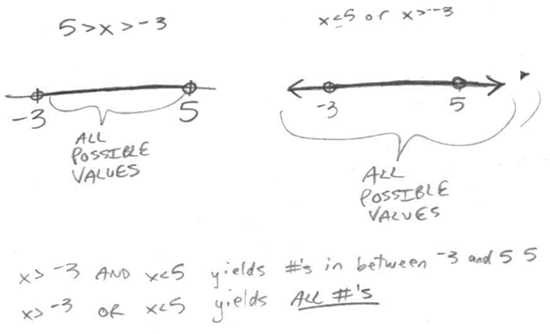 5 > x > -3
x < 5 or x > -3
-3
5
ALL
POSSIBLE
VALUES
-3
5
ALL
POSSIBLE
VALUES
x > -3 AND x < 5 yields #'s in between -3 and 5 5
x > -3 OR x < 5 yields ALL #'s